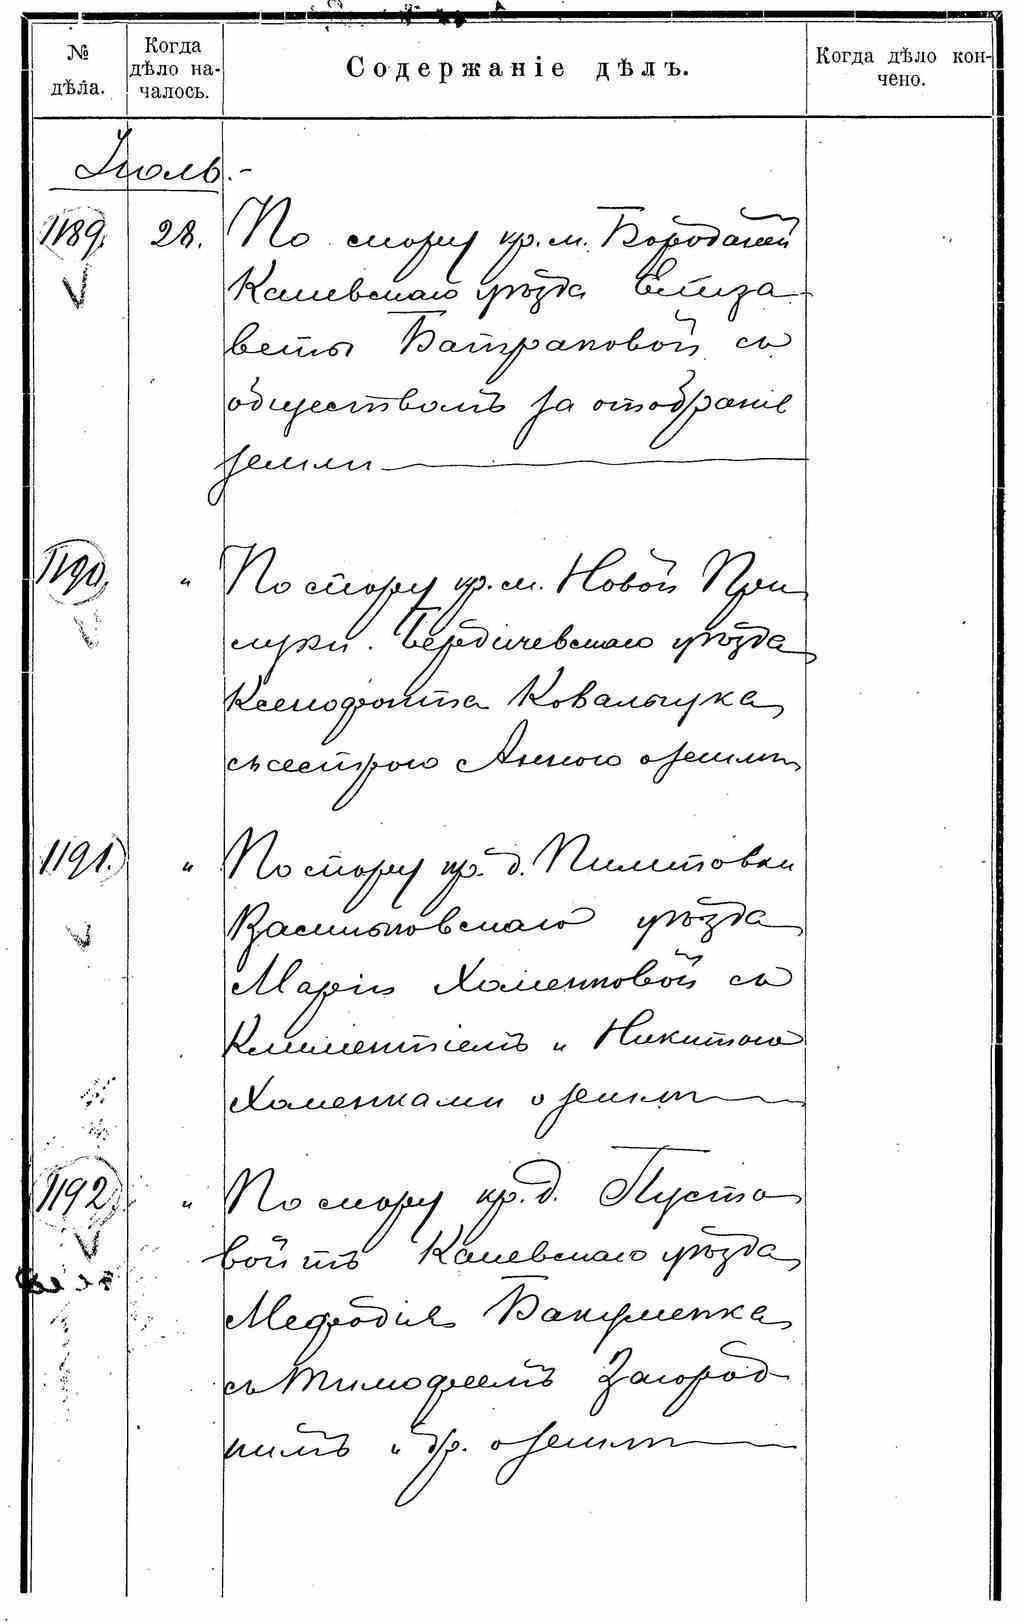 № дѣла.
Когда дѣло на-
чалось.
Содержаніе дѣлъ.
Когда дѣло кон-
чено.
Іюль.-
1189. 28. По спору кр. м. Бородяней
Каневскаго уѣзда Елиза-
веты Батраковой съ
обществомъ за отобраніе
земли
1190. " По спору кр. м. Новой При
луки. Бердичевскаго уѣзда
Ксенофонта Ковальчука
съ сестрою Анною о землѣ
1191. " По спору кр. д. Пилиповки
Васильковскаго уѣзда
Маріи Хоменковой съ
Климентіемъ и Никитою
Хоменками о землѣ
1192. " По спору кр. д. Пусто
войтъ Каневскаго уѣзда
Мефодія Бакуменка
съ Тимофеемъ Загород-
нимъ и др. о землѣ